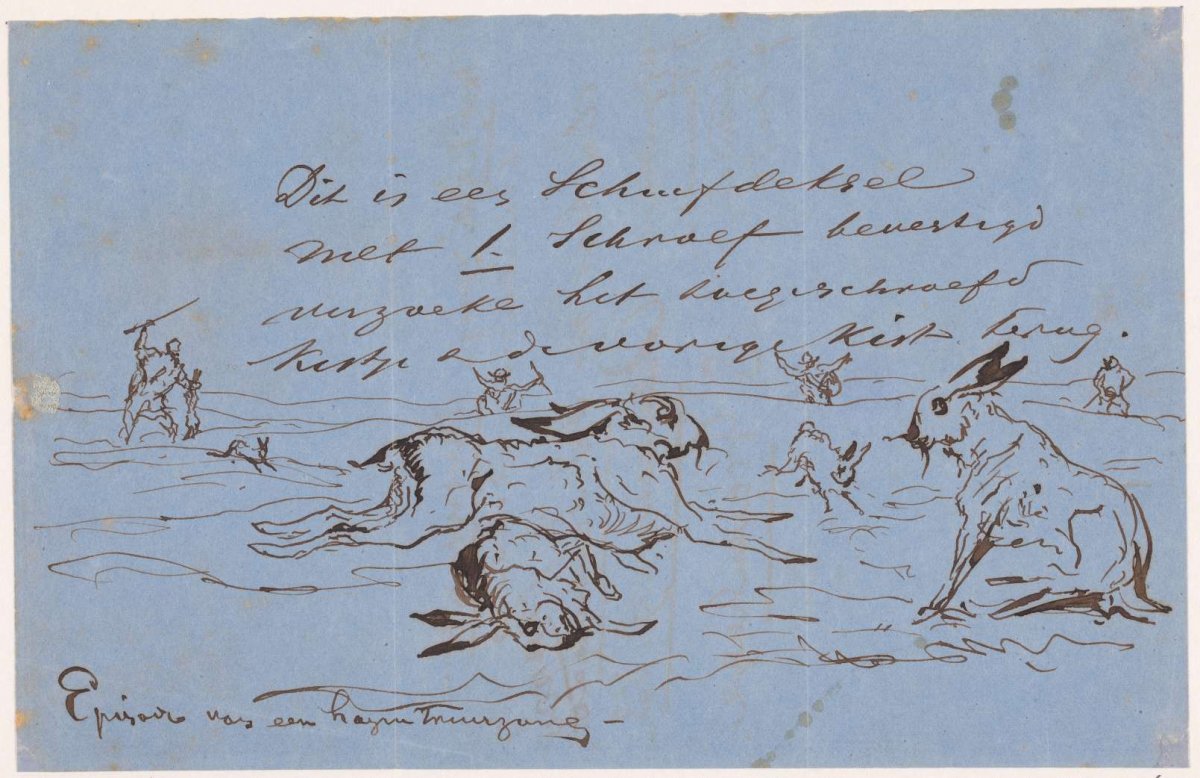 Dit is een Schuifdeksel
met 1. Schroef bevestigd
verzoeke het toegeschroefd
Kistje a de vorige Kist terug.
Episode van een hazen treurzang –